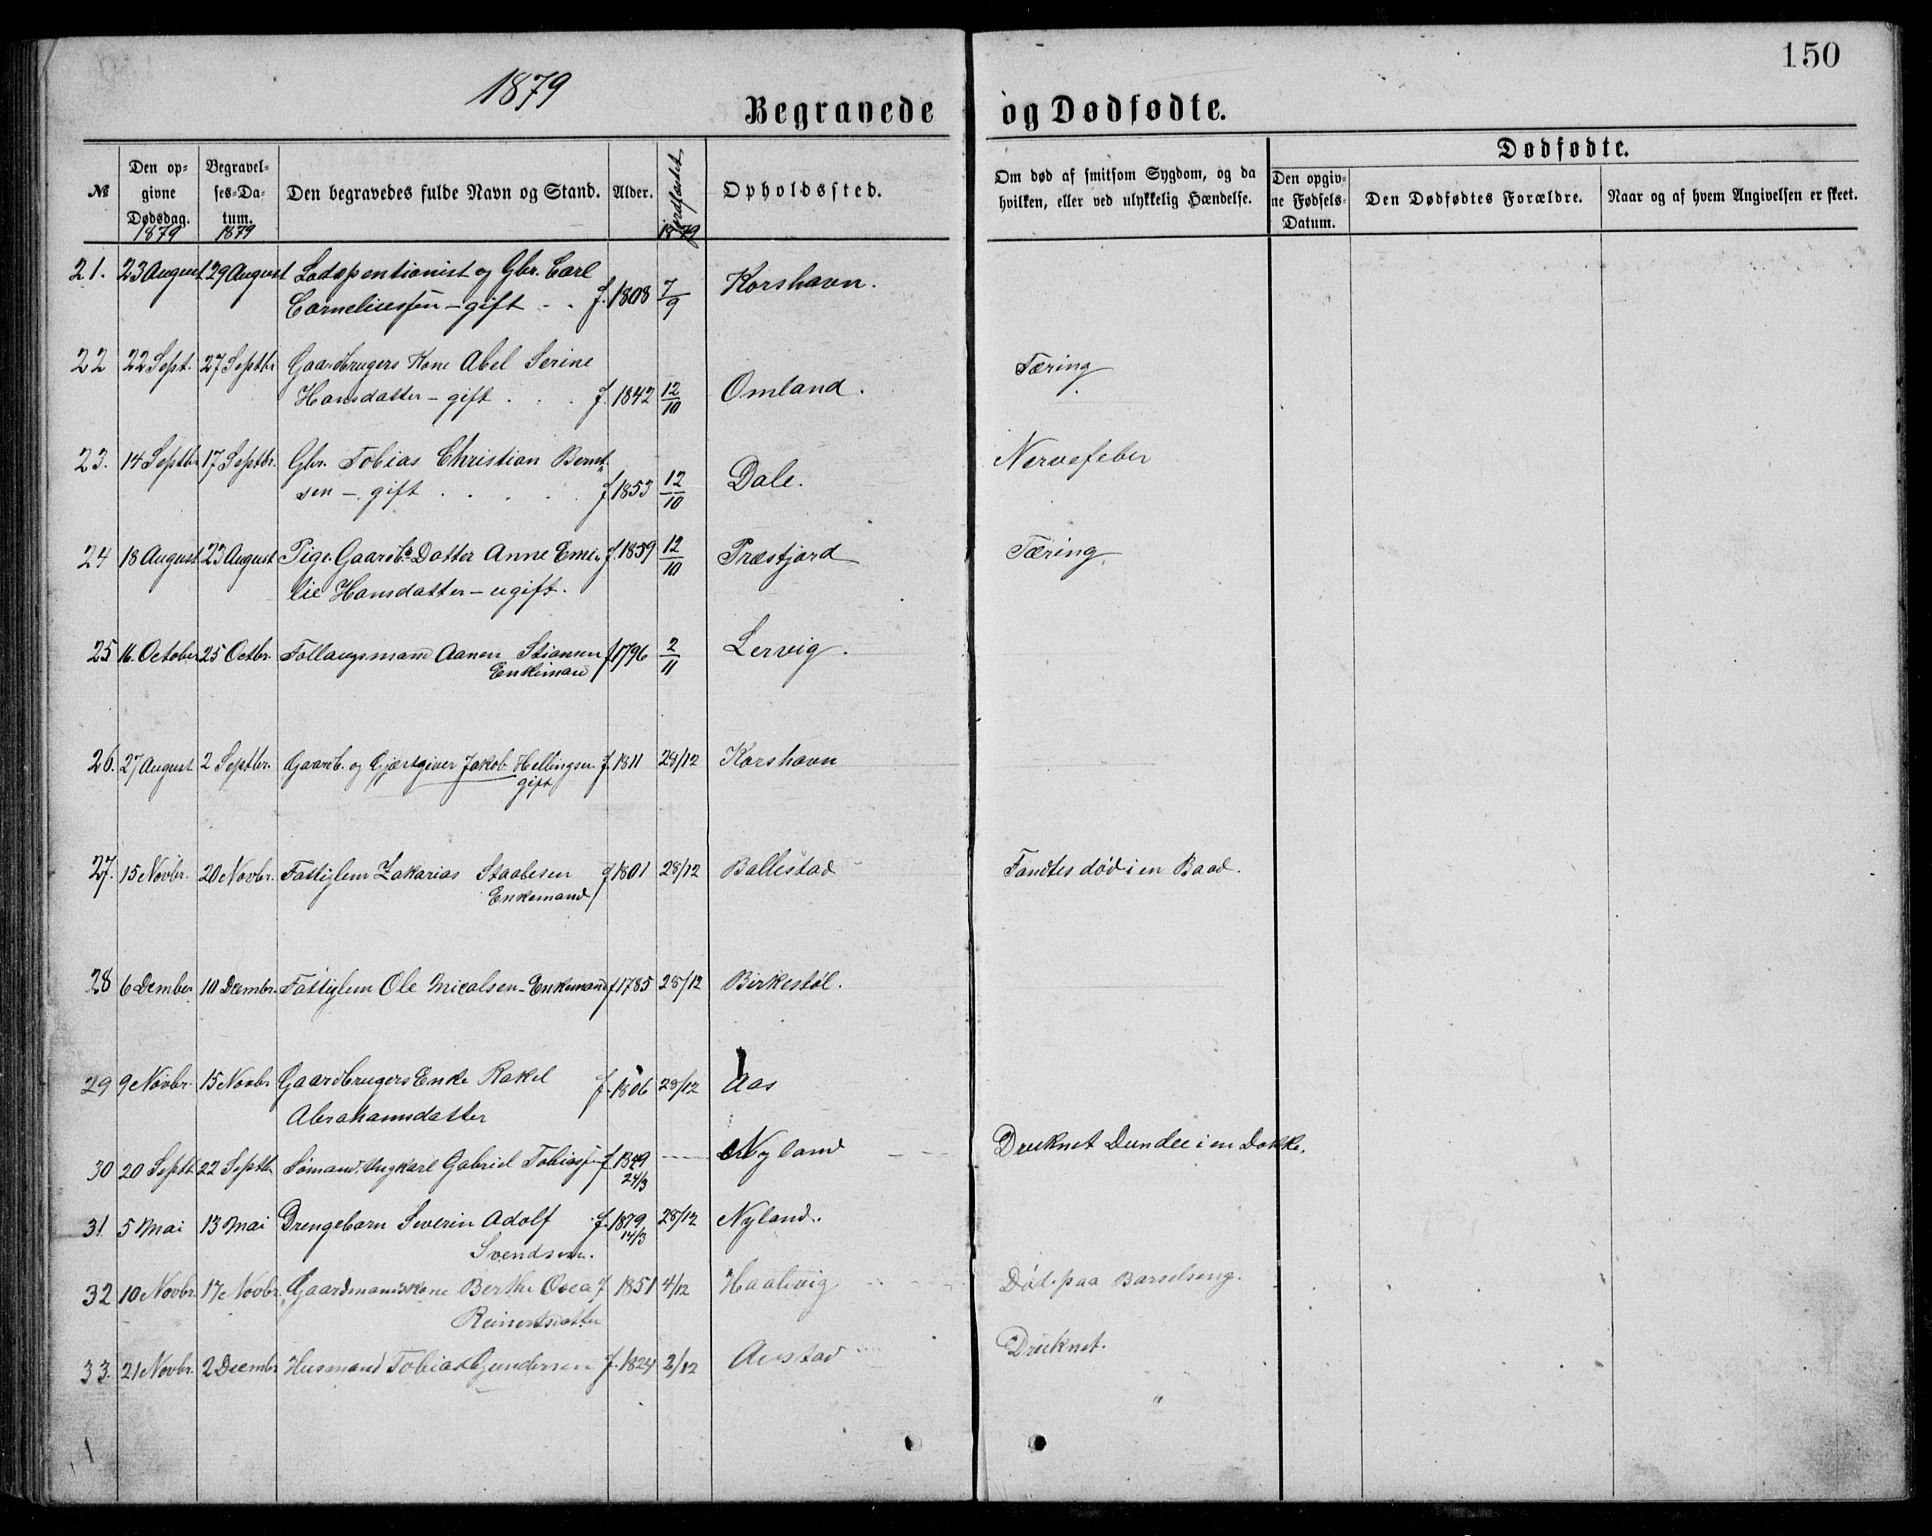 150
1879
Begravede og Dødfødte.
№
Den opgivne Dødsdag. 1879
Begravelses-Datum. 1879
Den begravedes fulde Navn og Stand.
Alder.
Jordfæstet 1879
Opholdssted.
Om død af smitsom Sygdom, og da hvilken, eller ved ulykkelig Hændelse.
Dødfødte.
Den opgivne Fødsels-Datum.
Den Dødfødtes Forældre.
Naar og af hvem Angivelsen er skeet.
21. 23 August 29 August Lodspentionist og Gbr. Carl
Corneliussen - gift . . f. 1808 7/9 Korshavn.
22 22 Sept. 27 Septbr. Gaardbrugers Kone Abel Serine Tæring
Hansdatter - gift . . . f. 1842 12/10 Omland.
23. 14 Septbr. 17 Septbr. Gbr. Tobias Christian Bernt- Nervefeber
sen - gift . . . . . f 1853 12/10 Dale.
24 18 August 23 August Pige Gaardbs Datter Anne Emi- f 1859 12/10 Præstfjord Tæring
lie Hansdatter - ugift.
25 16. October 25 Octbr. Follaugsmand Aanen Stiansen f 1796 2/11 Lervig.
Enkemand
26. 27 August 2 Septbr. Gaardb. og Gjæstgiver Jakob Hellingsen f. 1811 28/12 Korshavn
gift
27. 15 Novbr. 20 Novbr. Fattiglem Zakarias Staalesen f 1801 28/12 Ballestad Fandtes død i en Baad.
Enkemand
28 6 Dember 10 Decmbr. Fattiglem Ole Micalsen - Enkemand f 1785 28/12 Birkestøl.
29 9 Novbr. 15 Novbr Gaardbrugers Enke Rakel f. 1806 28/12 Aas
Abrahamsdatter
30 20 Septb 22 Septbr Sømand. Ungkarl Gabriel Tobiassen f. 1849 Nyland Druknet Dundee i en Dokke.
24/3
31 5 Mai 13 Mai Drengebarn Severin Adolf f. 1879 28/12 Nyland.
14/3
Svendsen.
32 10 Novbr. 17 Novbr. Gaardmandskone Berthe Osea f 1851 4/12 Haalevig Død paa Barselseng.
Reinertsdatter
33. 21 Novbr. 2 Decmbr Husmand Tobias Gundersen f. 1824 2/12 Austad Druknet.